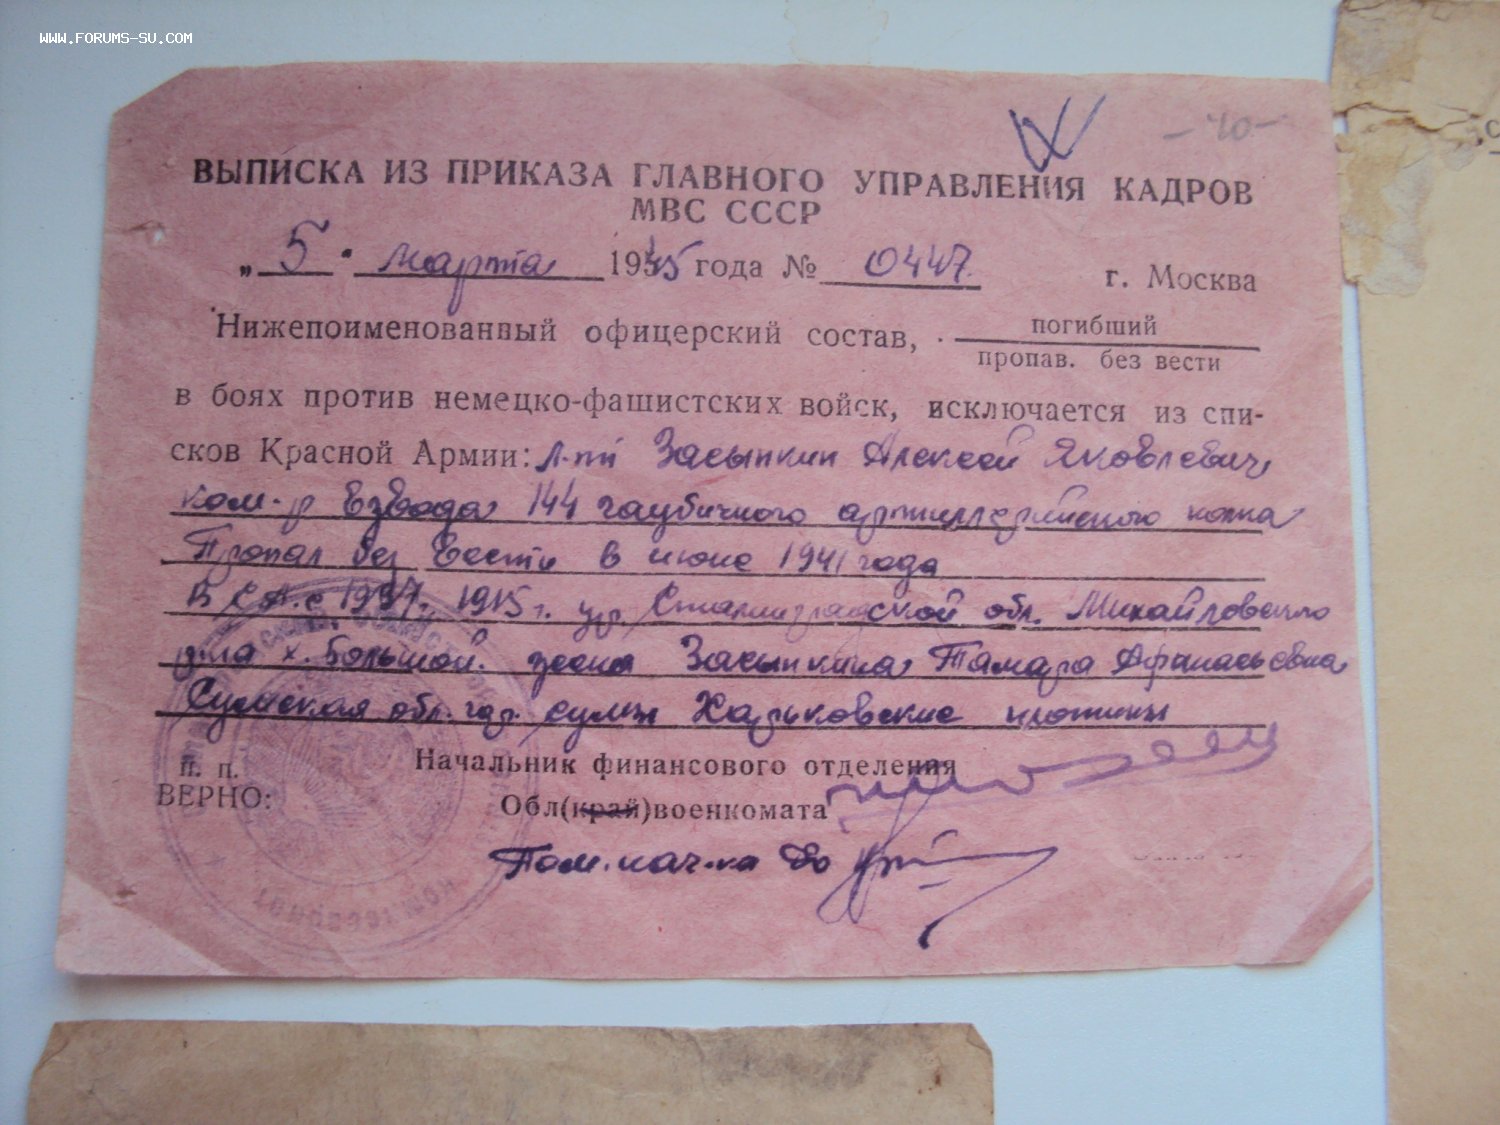 WWW.FORUMS-SU.COM
- 40 -
ВЫПИСКА ИЗ ПРИКАЗА ГЛАВНОГО УПРАВЛЕНИЯ КАДРОВ
МВС СССР
„ 5 " марта 1945 года № 0447. г. Москва
Нижепоименованный офицерский состав, погибший
пропав. без вести
в боях против немецко-фашистских войск, исключается из спи-
сков Красной Армии: л-т Засыпкин Алексей Яковлевич
ком-р взвода 144 гаубичного артиллерийского полка
Пропал без вести в июне 1941 года
В К.А. с 1937. 1915 г. ур. Сталинградской обл. Михайловского
р-на х. Большой. жена Засыпкина Тамара Афанасьевна
Сумская обл. гор. Сумы Харьковские
п. п.
ВЕРНО:
Начальник финансового отделения
Обл(край)военкомата
Пом. нач-ка